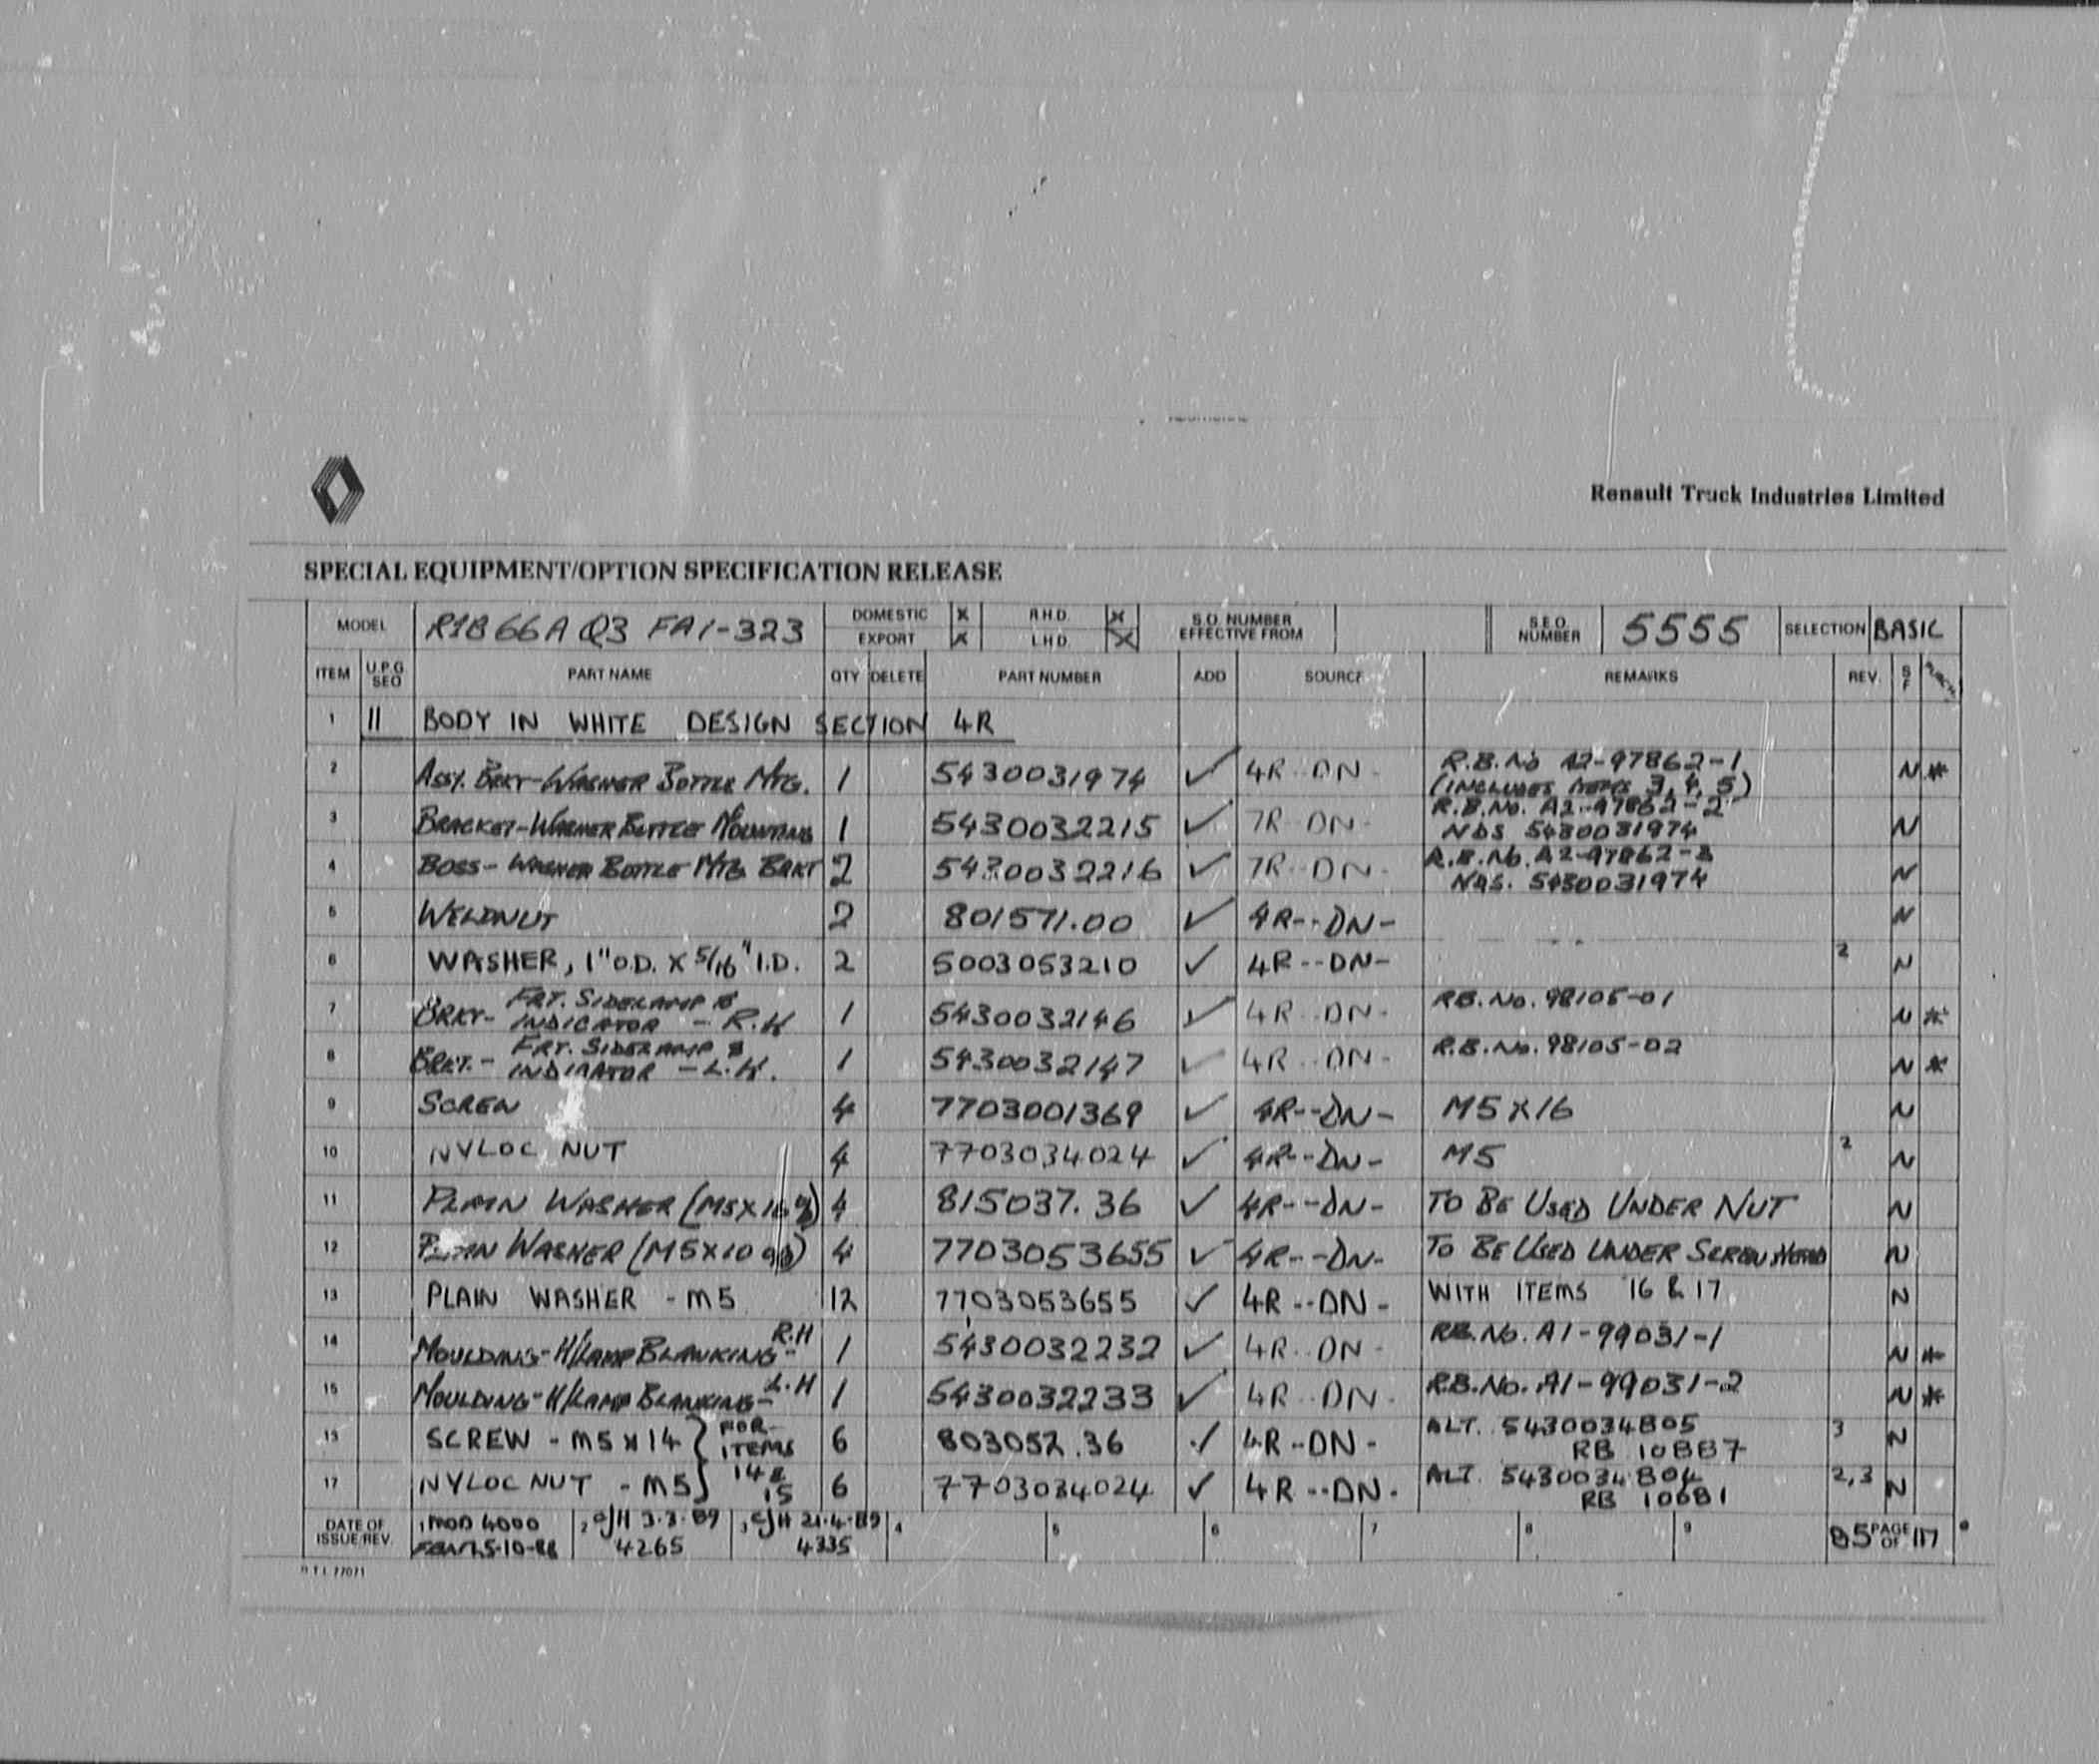 Renault Truck Industries Limited
SPECIAL EQUIPMENT/OPTION SPECIFICATION RELEASE
MODEL R1866A Q3 FA1-323 DOMESTIC X R.H.D. X S.O. NUMBER EFFECTIVE FROM S.E.O. NUMBER 5555 SELECTION BASIC
EXPORT X L.H.D. X
ITEM U.P.G. SEQ PART NAME QTY DELETE PART NUMBER ADD SOURCE REMARKS REV. S F
1 11 BODY IN WHITE DESIGN SECTION 4R
2 ASSY. BRKT-WASHER BOTTLE MTG. 1 5430031974 ✓ 4R--DN- R.B.No A2-97862-1 N *
(INCLUDES ITEMS 3, 4, 5)
3 BRACKET-WASHER BOTTLE MOUNTING 1 5430032215 ✓ 7R--DN- R.B.No. A2-97862-2 N
NDS 5430031974
4 BOSS-WASHER BOTTLE MTG BRKT 2 5430032216 ✓ 7R--DN- R.B.No. A2-97862-3 N
NDS. 5430031974
5 WELDNUT 2 801571.00 ✓ 4R--DN- N
6 WASHER, 1" O.D. X 5/16" I.D. 2 5003053210 ✓ 4R--DN- 2 N
7 BRKT- FRT. SIDELAMP & INDICATOR - R.H 1 5430032146 ✓ 4R--DN- RB.No. 98105-01 N *
8 BRKT.- FRT. SIDELAMP & INDICATOR - L.H. 1 5430032147 ✓ 4R--DN- R.B.No. 98105-02 N *
9 SCREW 4 7703001369 ✓ 4R--DN- M5X16 N
10 NYLOC NUT 4 7703034024 ✓ 4R--DN- M5 2 N
11 PLAIN WASHER (M5X16 4 815037.36 ✓ 4R--DN- TO BE USED UNDER NUT N
12 PLAIN WASHER (M5X10 4 7703053655 ✓ 4R--DN- TO BE USED UNDER SCREW HEAD N
13 PLAIN WASHER - M5 12 7703053655 ✓ 4R--DN- WITH ITEMS 16 & 17 N
14 MOULDING-H/LAMP BLANKING- R.H 1 5430032232 ✓ 4R--DN- RB.No. A1-99031-1 N *
15 MOULDING-H/LAMP BLANKING- L.H 1 5430032233 ✓ 4R--DN- R.B.No. A1-99031-2 N *
SCREW - M5 X 14 } FOR ITEMS 6 803052.36 ✓ 4R--DN- ALT. 5430034805 3 N
RB 10887
17 NYLOC NUT - M5 } 14 & 15 6 7703034024 ✓ 4R--DN- ALT. 5430034804 2,3 N
DATE OF ISSUE/REV. 1 MOD 4000 2 C/H 3.3.89 3 C/H 21.4.89 4 5 6 7 8 9 85 PAGE OF 117
4265 4335
R T I 77071